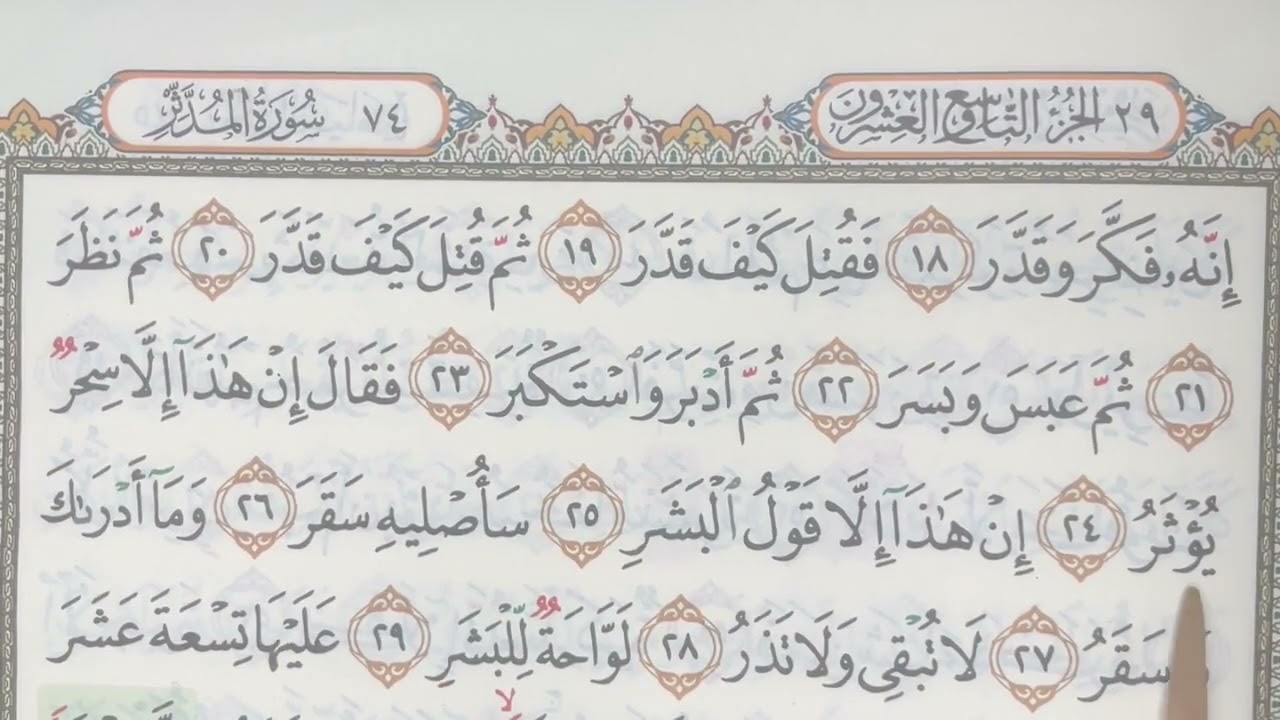 ٢٩ الجُزْءُ التَّاسِعُ وَالعِشْرُونَ
٧٤ سُورَةُ المُدَّثِّر
إِنَّهُۥ فَكَّرَ وَقَدَّرَ ١٨ فَقُتِلَ كَيْفَ قَدَّرَ ١٩ ثُمَّ قُتِلَ كَيْفَ قَدَّرَ ٢٠ ثُمَّ نَظَرَ
٢١ ثُمَّ عَبَسَ وَبَسَرَ ٢٢ ثُمَّ أَدْبَرَ وَٱسْتَكْبَرَ ٢٣ فَقَالَ إِنْ هَٰذَآ إِلَّا سِحْرٌ
يُؤْثَرُ ٢٤ إِنْ هَٰذَآ إِلَّا قَوْلُ ٱلْبَشَرِ ٢٥ سَأُصْلِيهِ سَقَرَ ٢٦ وَمَآ أَدْرَىٰكَ
سَقَرُ ٢٧ لَا تُبْقِى وَلَا تَذَرُ ٢٨ لَوَّاحَةٌ لِّلْبَشَرِ ٢٩ عَلَيْهَا تِسْعَةَ عَشَرَ